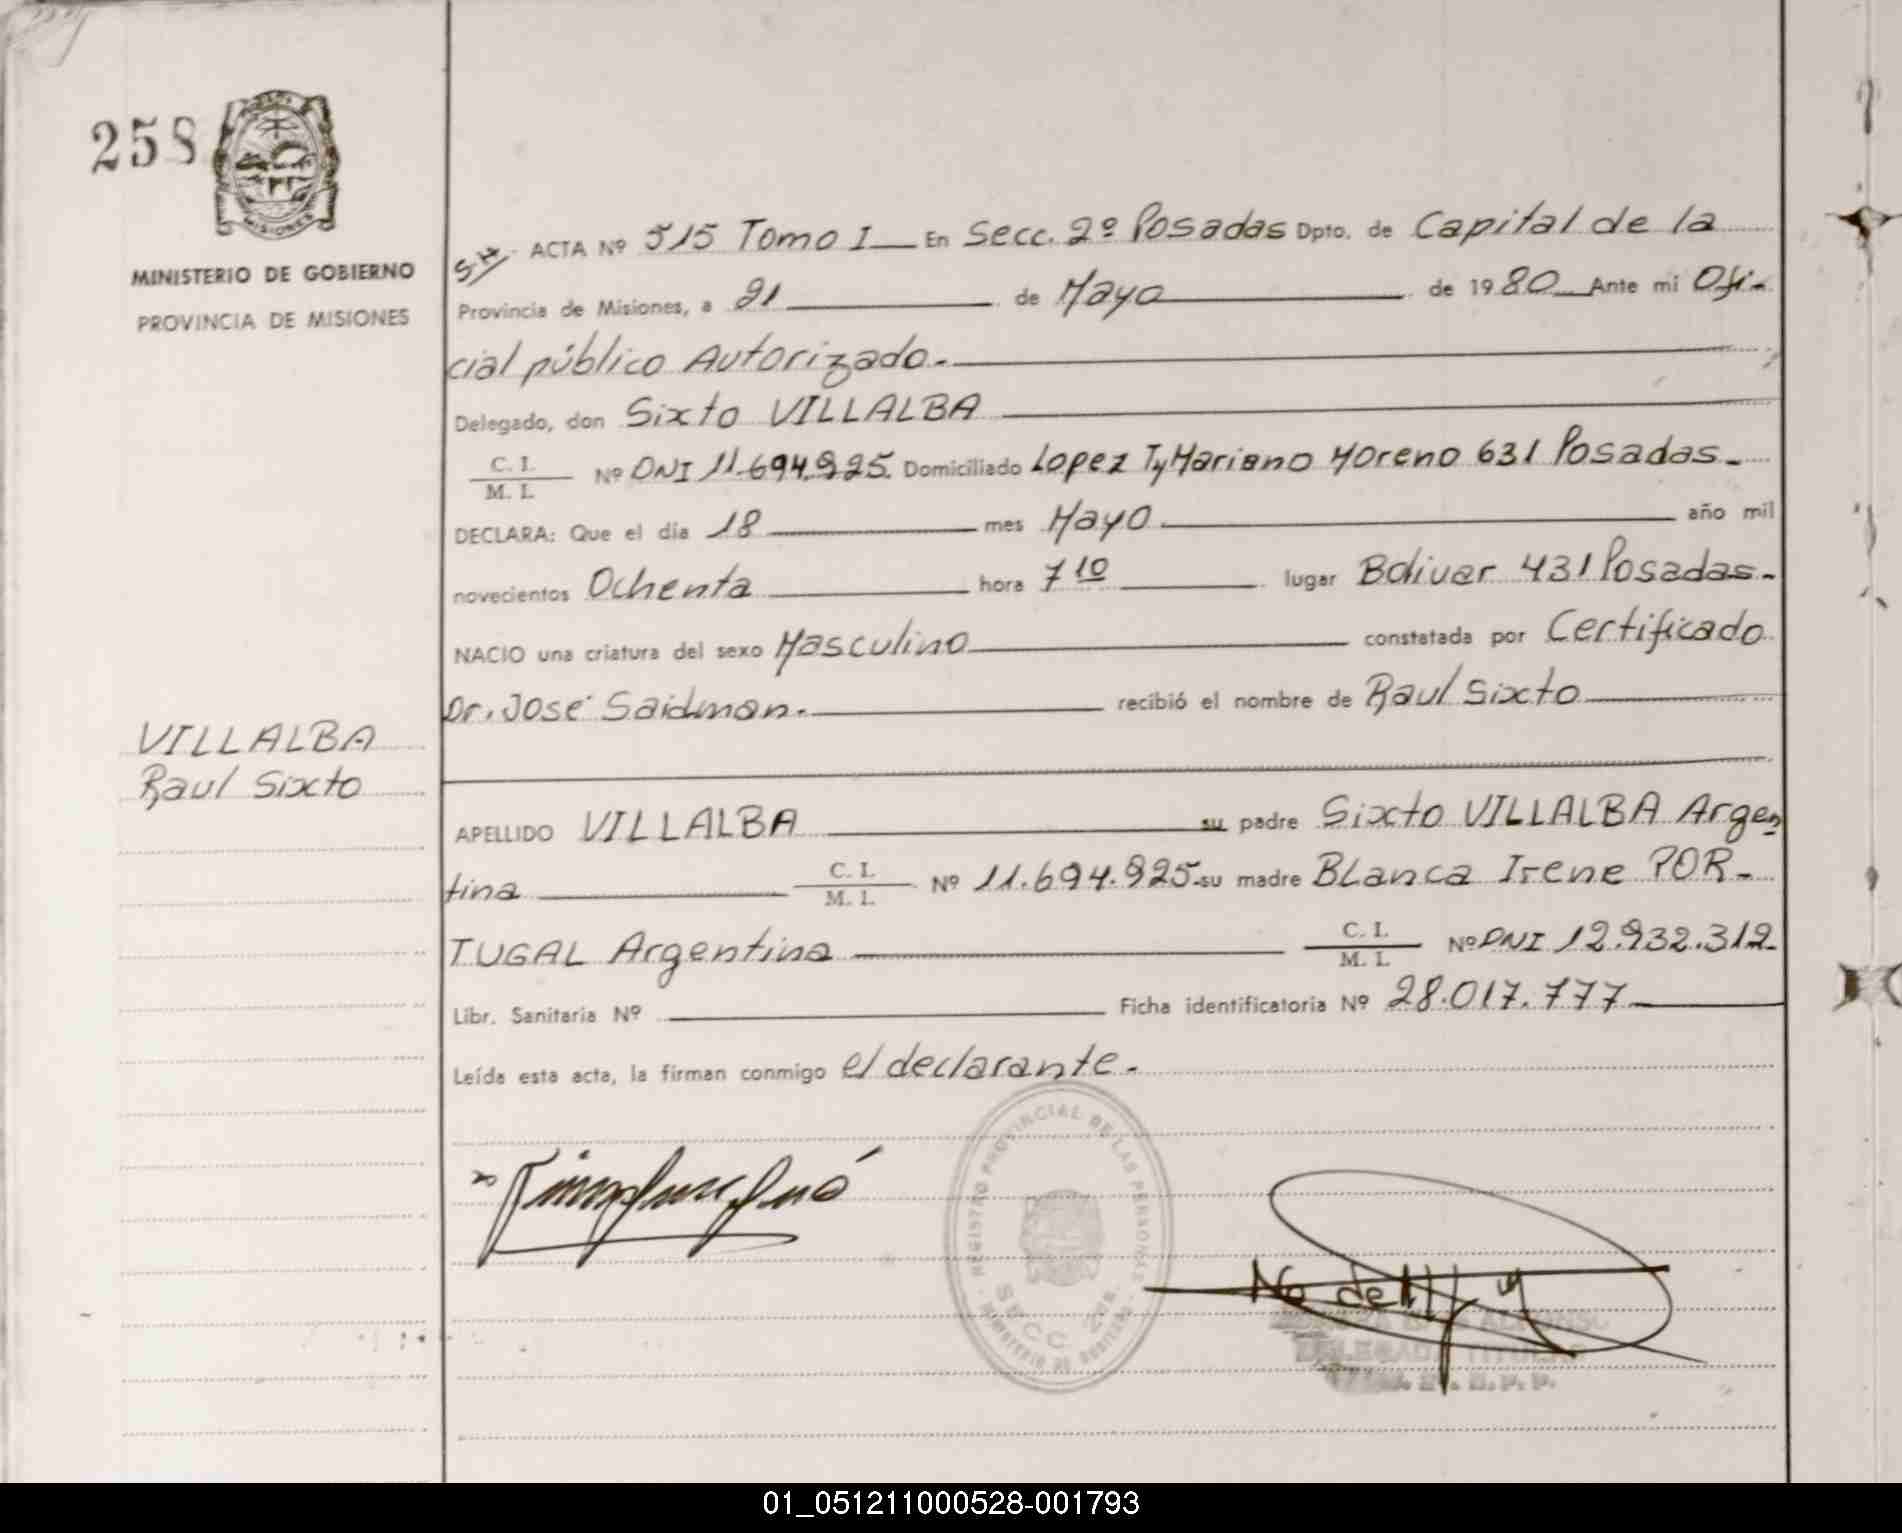 258
MISIONES
MINISTERIO DE GOBIERNO
PROVINCIA DE MISIONES
VILLALBA
Raul Sixto
ACTA Nº 515 Tomo I En Secc. 2º Posadas Dpto. de Capital de la
Provincia de Misiones, a 21 de Mayo de 1980 Ante mi Ofi-
cial público Autorizado.-
Delegado, don Sixto VILLALBA
C. I.
M. I. Nº DNI 11.694.925. Domiciliado Lopez T y Mariano Moreno 631 Posadas.-
DECLARA: Que el día 18 mes Mayo año mil
novecientos Ochenta hora 7 10 lugar Bolivar 431 Posadas.-
NACIO una criatura del sexo Masculino constatada por Certificado
Dr. José Saidman. recibió el nombre de Raul Sixto
APELLIDO VILLALBA su padre Sixto VILLALBA Argen
tina C. I. M. I. Nº 11.694.925. su madre BLanca Irene POR-
TUGAL Argentina C. I. M. I. Nº DNI 12.932.312.
Libr. Sanitaria Nº Ficha identificatoria Nº 28.017.777
Leída esta acta, la firman conmigo el declarante.-
REGISTRO PROVINCIAL DE LAS PERSONAS
SECC.
MINISTERIO DE GOBIERNO
ALFONSO
DELEGADA TITULAR
01_051211000528-001793